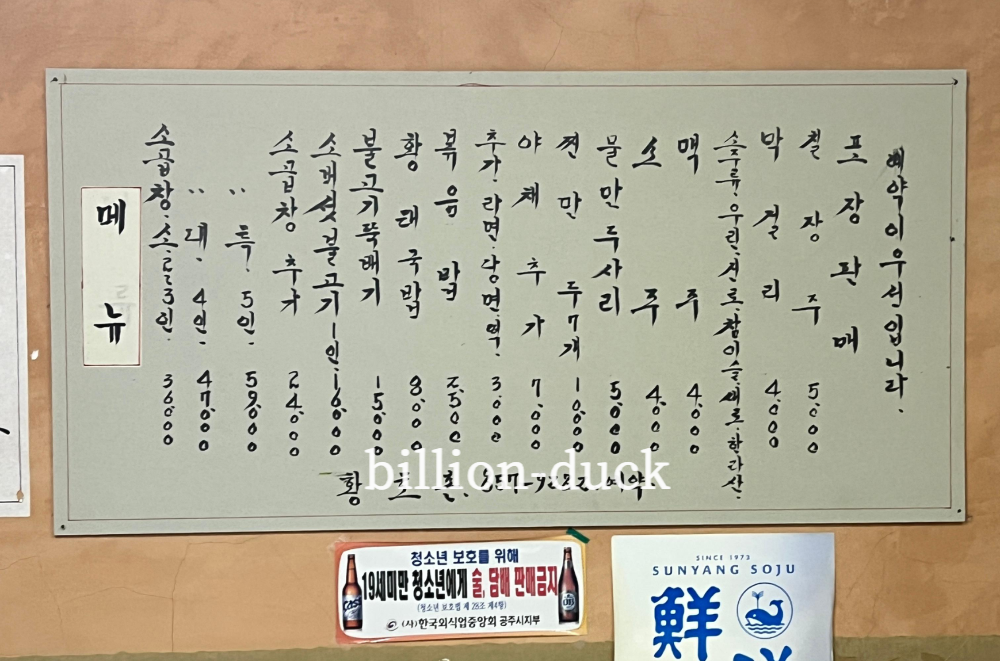 메뉴
소곱창.소.2~3인. 36000
〃 대. 4인. 47000
〃 특. 5인. 59000
소곱창 추가 24000
소버섯불고기 1인. 16000
불고기뚝배기 15000
황태국밥 8000
볶음밥 2,500
추가. 라면.당면.떡. 3,000
야채추가 7,000
찐만두7개 10,000
물만두사리 5,000
소주 4,000
맥주 4,000
소주류.우린.선로.참이슬.새로.한라산.
막걸리 4,000
칠장주 5,000
포장판매
예약이우선입니다.
billion-duck
청소년 보호를 위해
19세미만 청소년에게 술, 담배 판매금지
(청소년 보호법 제 28조 제4항)
(사)한국외식업중앙회 공주시지부
SINCE 1973
SUNYANG SOJU
鮮